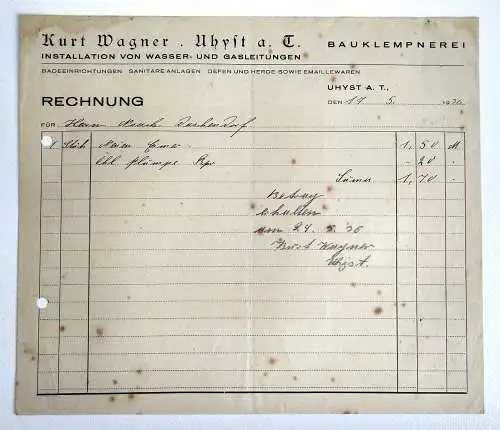 Kurt Wagner . Uhyst a. T. BAUKLEMPNEREI
INSTALLATION VON WASSER- UND GASLEITUNGEN
BADEEINRICHTUNGEN SANITÄRE ANLAGEN OEFEN UND HERDE SOWIE EMAILLEWAREN
UHYST A. T.,
RECHNUNG DEN 19. 5. 1936
FÜR Herrn
1 Stück Eimer 1,50 M
Rep - 20 -
Suma 1,70 -
Betrag
erhalten
am 29. 5. 36
Kurt Wagner
Uhyst.